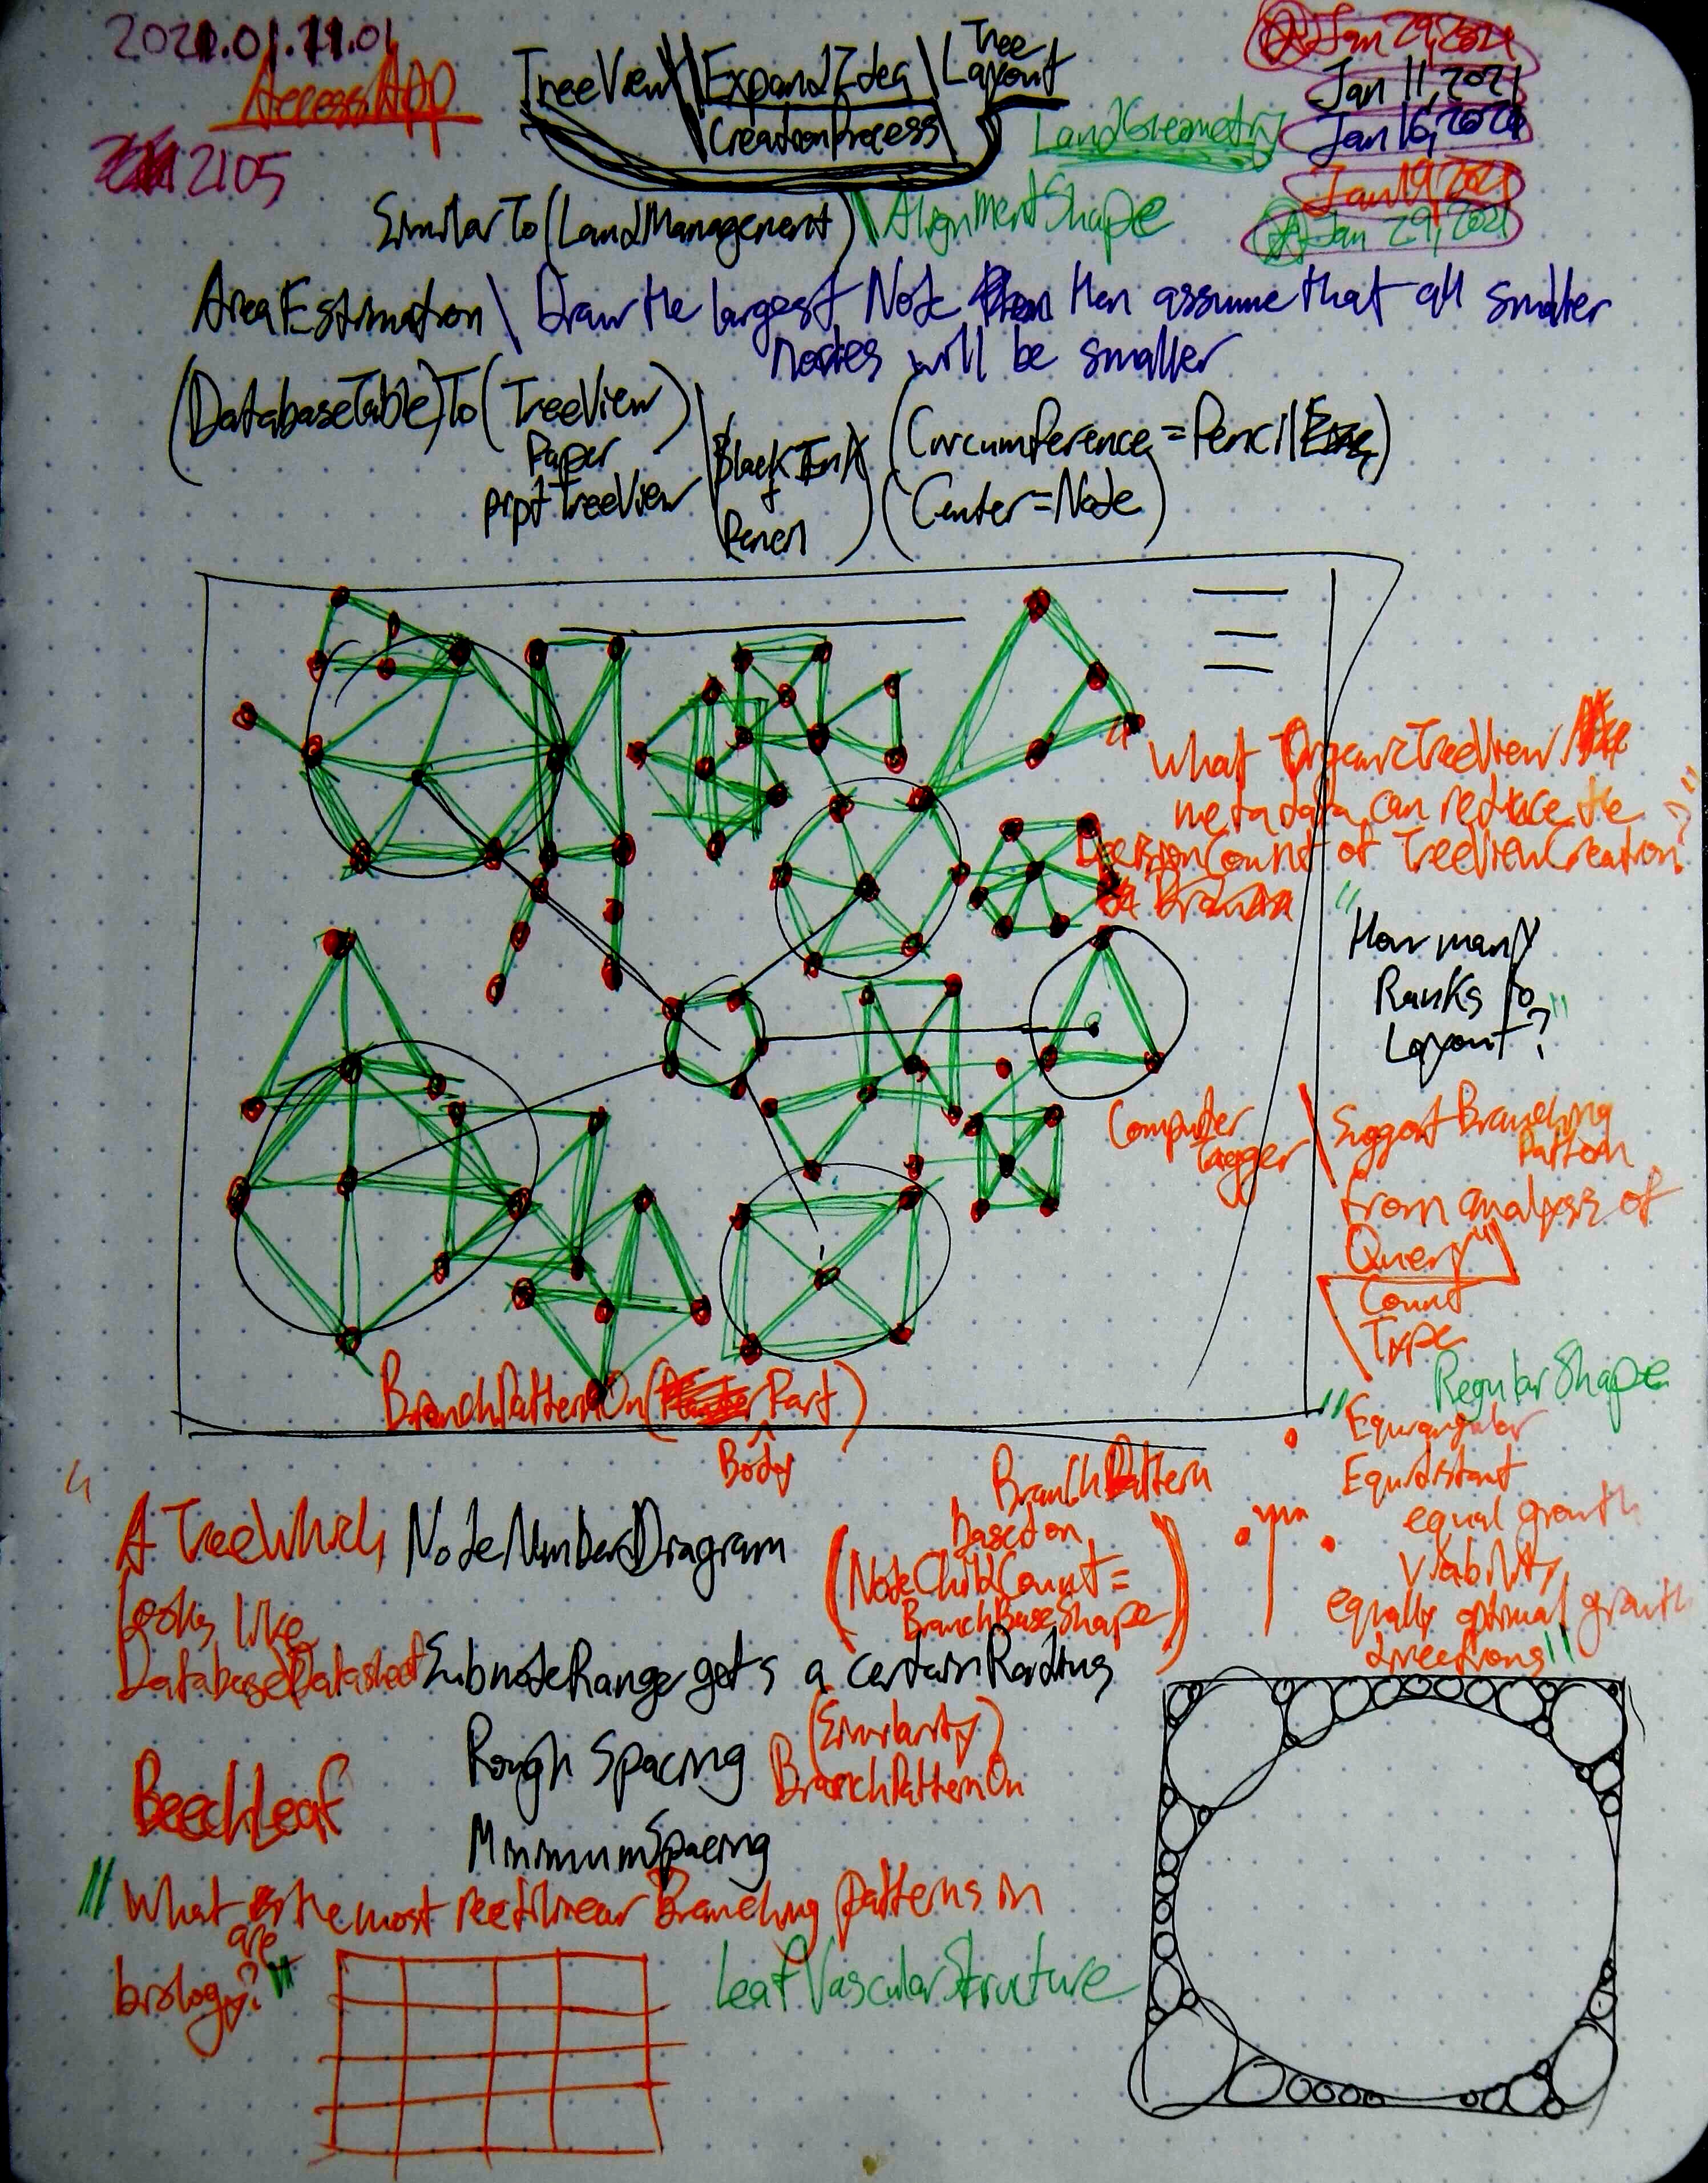 2021.01.11.01
AccessApp
2105
TreeView\ExpandIdea\Tree Layout
CreationProcess
LandGeometry
Jan 29, 2021
Jan 11, 2021
Jan 16, 2021
Jan 19, 2021
Jan 29, 2021
SimilarTo(LandManagement)\AlignmentShape
AreaEstimation\Draw the largest Node then assume that all smaller
nodes will be smaller
(DatabaseTable)To(TreeView)
Paper
pnpt TreeView
Black Ink
+
Pencil
(Circumference = Pencil)
(Center=Node)
"What OrganicTreeView
metadata can reduce the
DecisionCount of TreeViewCreation?"
"How many
Ranks to
Layout?"
Computer
Tagger
Suggest Branching
Pattern
from analysis of
Query"
Count
Type
RegularShape
"Equiangular
Equidistant
equal growth
viability,
equally optimal growth
directions"
BranchPatternOn(Part)
Body
"
A TreeWhich
looks like
DatabaseDatasheet
NodeNumberDiagram
BranchPattern
based on
(NodeChildCount =
BranchBaseShape)
SubnodeRange gets a certain Radius
Rough Spacing
(Similarity)
BranchPatternOn
BeechLeaf
MinimumSpacing
"What are the most rectilinear Branching patterns in
biology?"
LeafVascularStructure